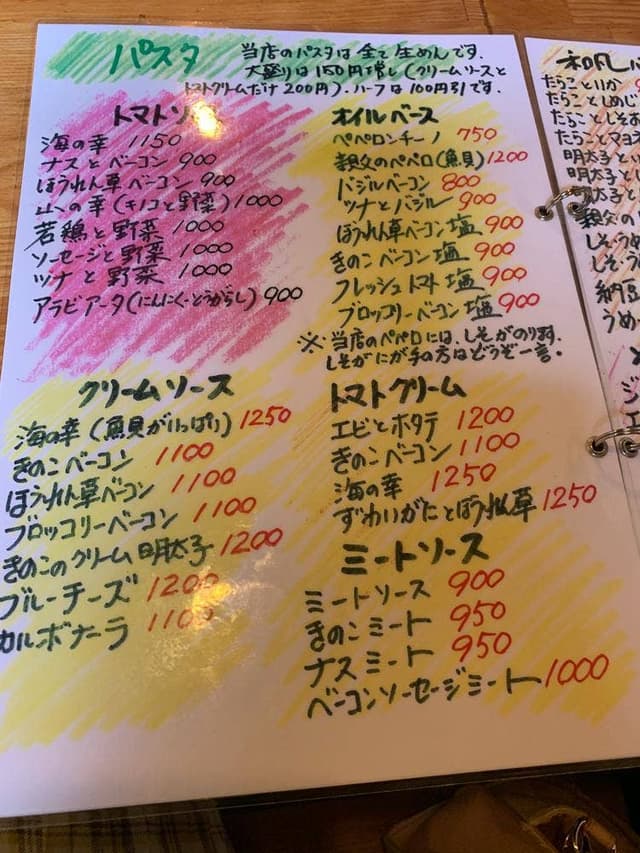 パスタ
当店のパスタは全て生めんです.
大盛りは150円増し(クリームソースと
トマトクリームだけ200円).ハーフは100円引です.
トマトソ
海の幸 1150
ナスとベーコン 900
ほうれん草ベーコン 900
山の幸(キノコと野菜)1000
若鶏と野菜 1000
ソーセージと野菜 1000
ツナと野菜 1000
アラビアータ(にんにく・とうがらし)900
オイルベース
ペペロンチーノ 750
親父のペペロ(魚貝)1200
バジルベーコン 800
ツナとバジル 900
ほうれん草ベーコン塩 900
きのこベーコン塩 900
フレッシュトマト塩 900
ブロッコリーベーコン塩 900
※当店のペペロには、しそがのります.
しそがにが手の方はどうぞ一言.
クリームソース
海の幸(魚貝がいっぱり)1250
きのこベーコン 1100
ほうれん草ベーコン 1100
ブロッコリーベーコン 1100
きのこのクリーム明太子 1200
ブルーチーズ 1200
カルボナーラ 1100
トマトクリーム
エビとホタテ 1200
きのこベーコン 1100
海の幸 1250
ずわいがにとほうれん草 1250
ミートソース
ミートソース 900
きのこミート 950
ナスミート 950
ベーコンソーセージミート 1000
和風
たらこといか
たらことしめじ
たらことしそ
たらことマヨ
明太子と
明太子と
明太子と
親父の
しそ
しそ
納豆
うめ